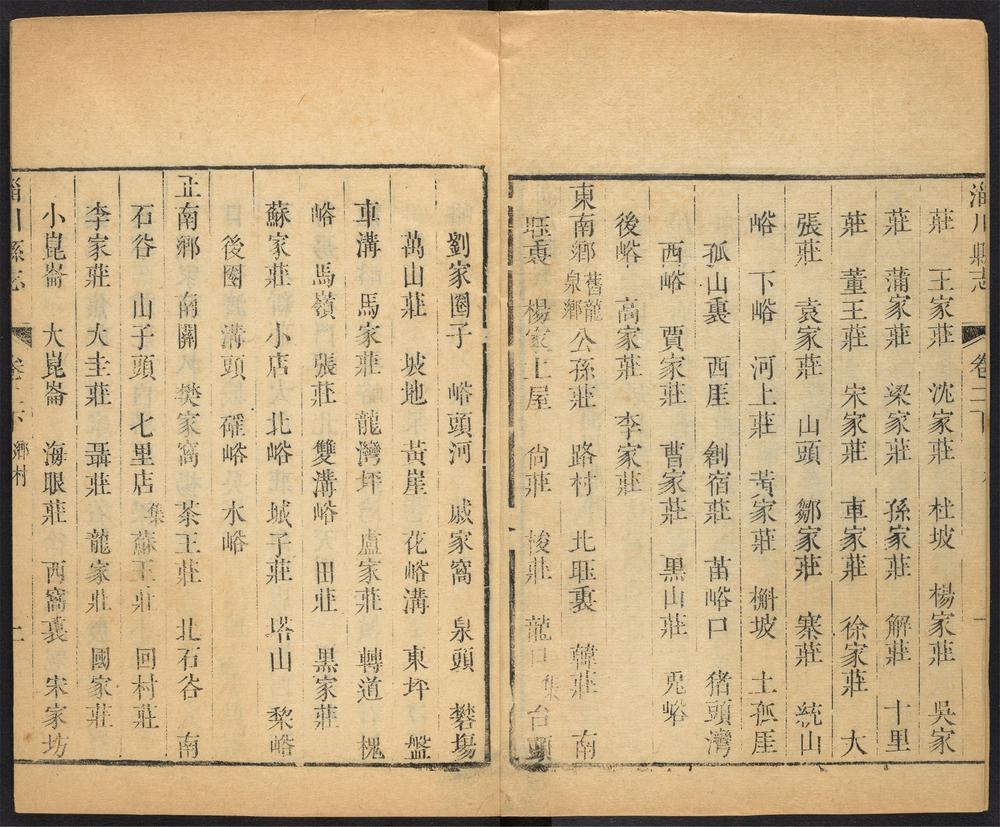 淄川縣志 卷二下
莊 王家莊 沈家莊 杜坡 楊家莊 吳家
莊 蒲家莊 梁家莊 孫家莊 解莊 十里
莊 董王莊 宋家莊 車家莊 徐家莊 大
張莊 袁家莊 山頭 鄒家莊 寨莊 統山
峪 下峪 河上莊 黃家莊 槲坡 土孤厓
孤山裏 西厓 創宿莊 苗峪口 猪頭灣
西峪 賈家莊 曹家莊 黑山莊 兎峪
後峪 高家莊 李家莊
東南鄉舊龍泉鄉 公孫莊 路村 北㼁裏 韓莊 南
㼁裏 楊家土屋 尙莊 梭莊 龍口集 台頭
劉家圈子 峪頭河 戚家窩 泉頭 礬場
萬山莊 坡地 黃崖 花峪溝 東坪 盤
車溝 馬家莊 龍灣坪 盧家莊 轉道 槐
峪 馬嶺 張莊 雙溝峪 田莊 黑家莊
蘇家莊 小店 北峪 城子莊 塔山 黎峪
後圈 溝頭 磪峪 水峪
正南鄉 南關 樊家窩 茶王莊 北石谷 南
石谷 山子頭 七里店集 蘇王莊 回村莊
李家莊 大圭莊 聶莊 龍家莊 國家莊
小崑崙 大崑崙 海眼莊 西窩裏 宋家坊
淄川縣志 卷二下 鄉村